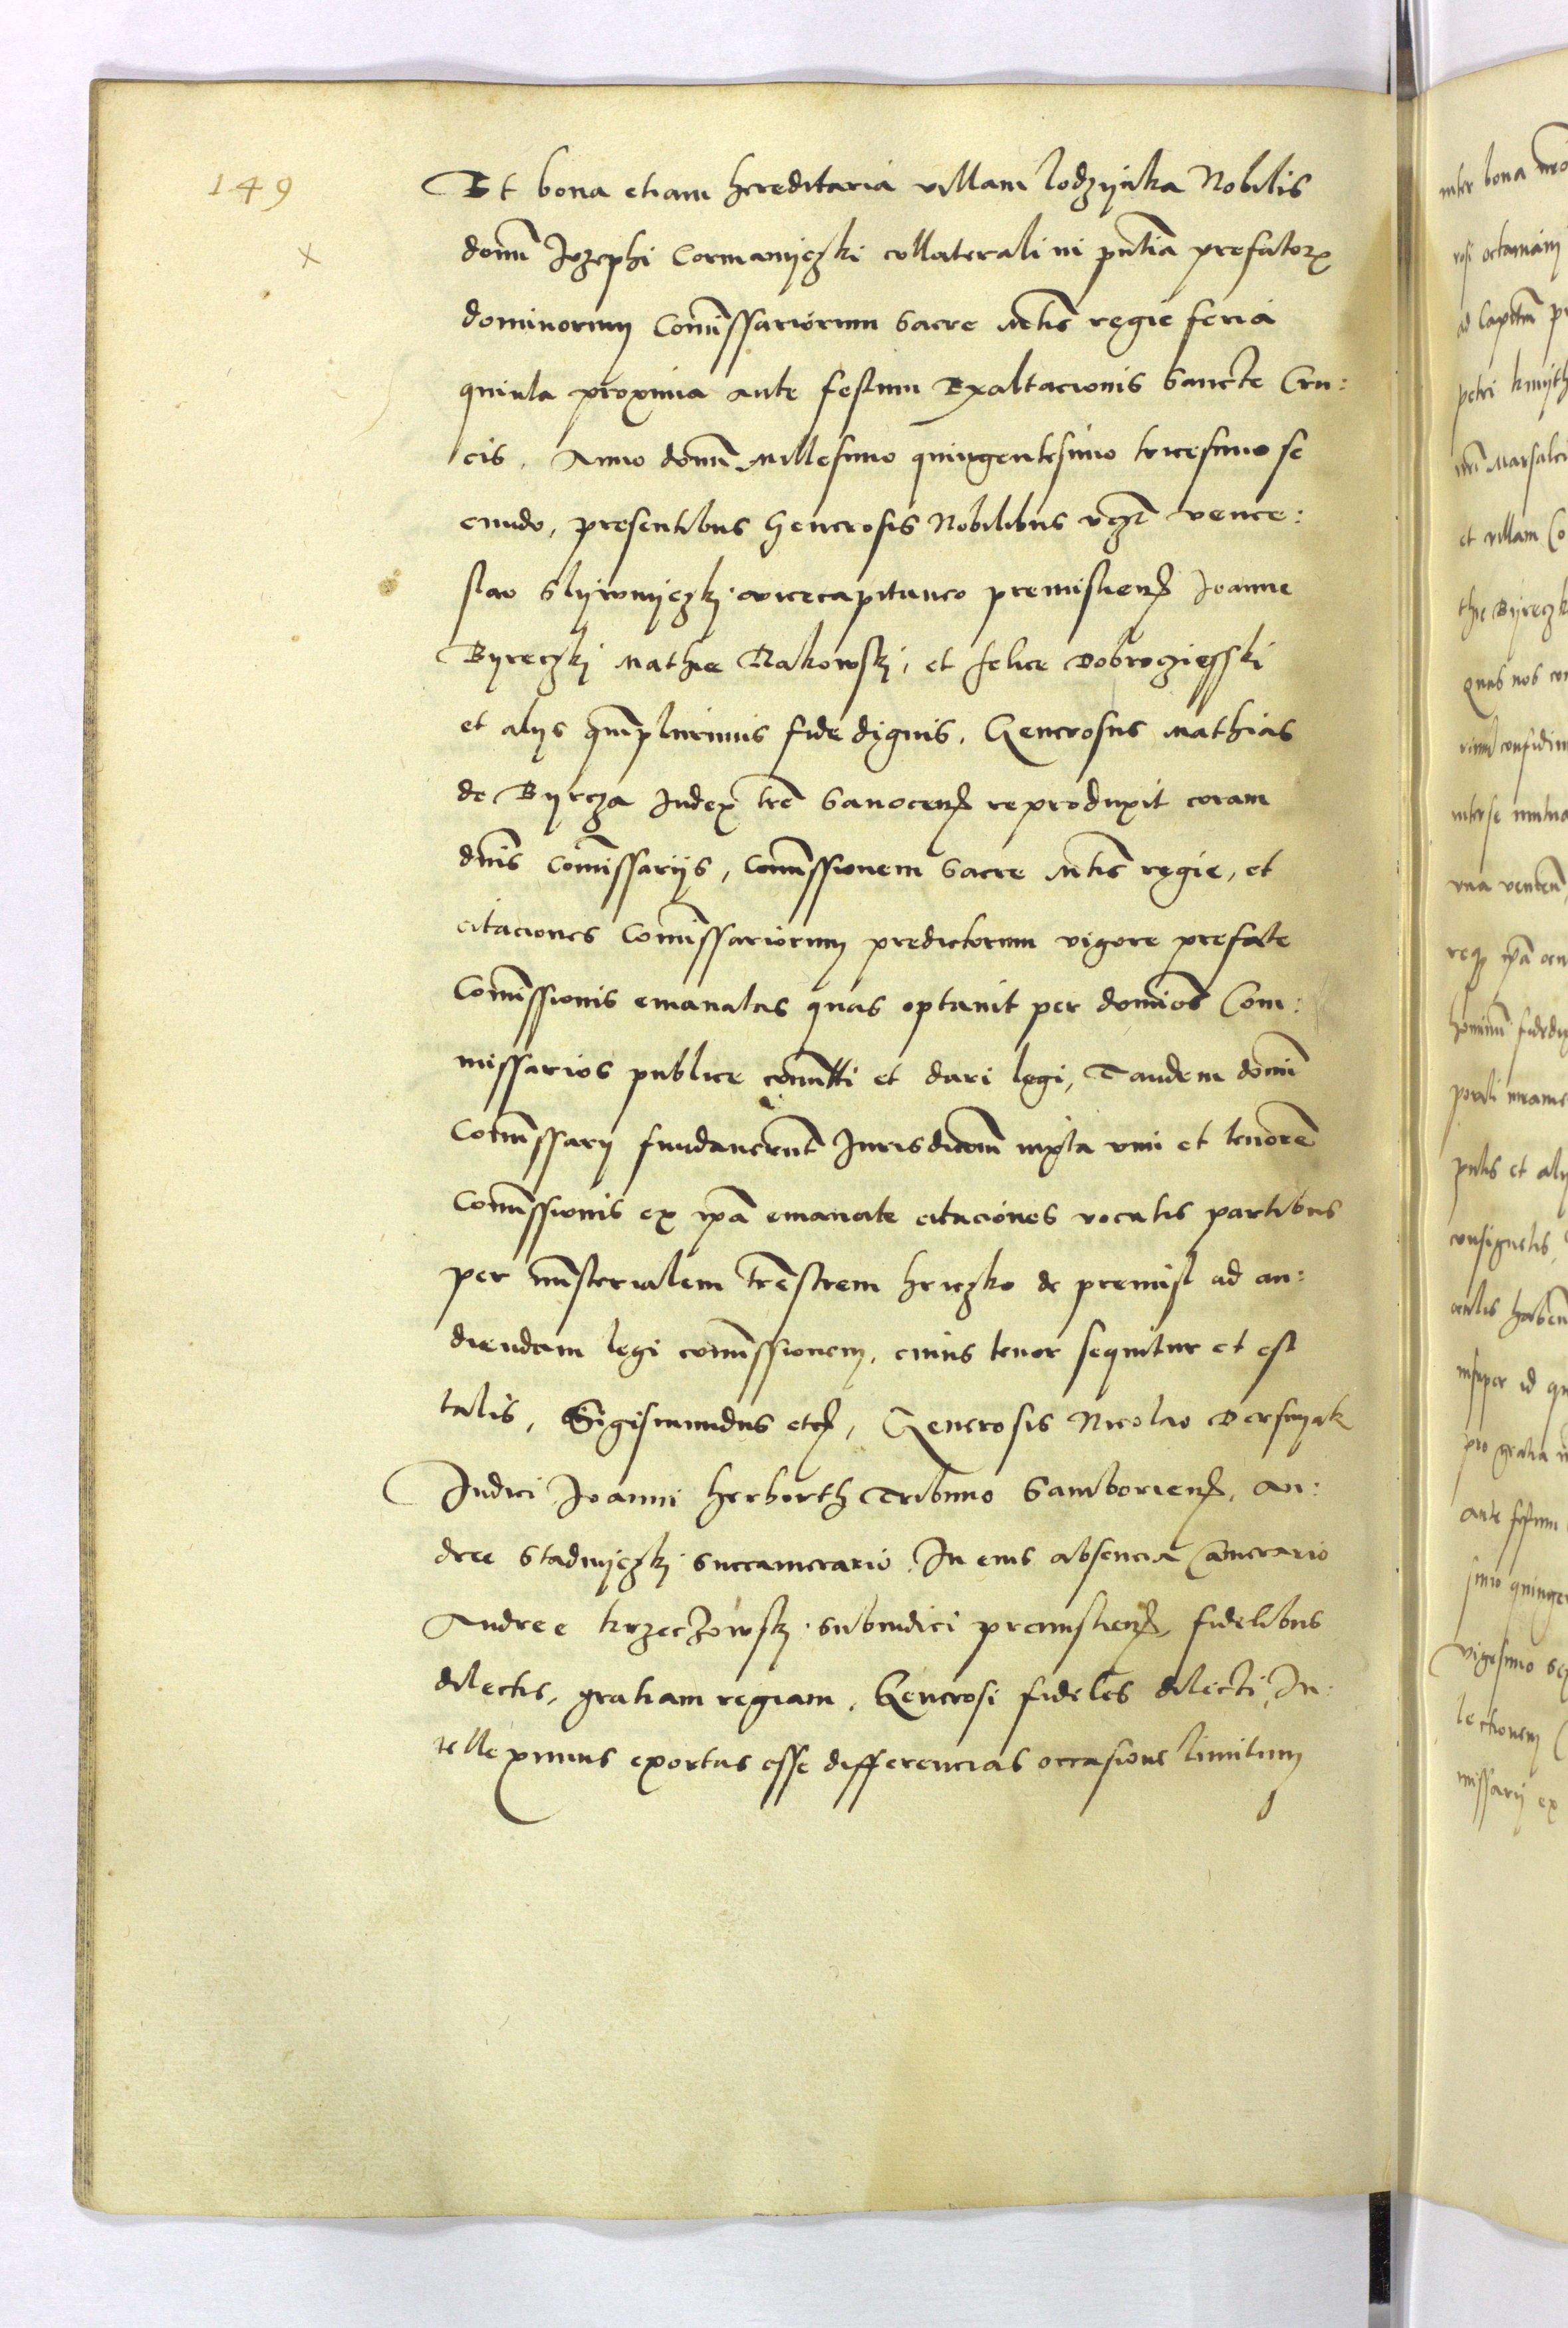 149
Et bona etiam hereditaria villam lodzÿnka Nobilis
x
domī Jozephi Cormanÿczki collaterali in pn̄tia prefatorꝝ
dominorum Com̄issariorum Sacre Mtīs regie feria
quinta proxima ante festum Exaltacionis Sancte Cru:
cis, Anno domī Millesimo quingentesimo tricesimo se
cundo, presentibus Generosis Nobilibus vence:
slao Slÿwnÿczkj vicecapitaneo premislienß Joanne
Byreczkj Mathia Rakowskj, et felice Dobrocziesski
et alys qm̄plurimis fide dignis, Generosus Mathias
de Bÿrcza Judex trē Sanocenß reproduxit coram
dnīs com̄issarÿs, Com̄issionem Sacre Mtīs regie, et
citaciones Com̄issariorum predictorum vigore prefate
Com̄issionis emanatas quas optauit per domīos Com:
missarios publice com̄itti et dari legi, Tandem domī
Com̄issary fundauerunt Jurisdicōm iuxta vim et tenorē
Com̄issionis ex ipā emanate citaciones vocatis partibus
per mīsterialem trēstrem hriczko de premisl ad au:
diendam legi com̄issionem, cuius tenor sequitur et est
talis, Sigismundus etcß, Generosis Nicolao Dersnyak
Judici Joanni herborth Tribuno Samborienß, An:
dree Stadnÿczkj Succamerario, In eius absencia Camerario
Andree krzeczowskj subiudici premislienß, fidelibus
dilectis, gratiam regiam, Generosi fideles dilecti, In:
telleximus exortas esse differencias occasione limitum
inter bona
rosi
ad Capitm̄
petri kmÿth
nrī Marsalci
et villam Co
thie Byreczk
quas nos
confidim
inter se mutua
vna
ipā
hominū fidedig
pn̄tis et aly
consignetis
habent
insuper id qu
pro gratia
ante festum
simo quinge
vigesimo
lectionem
missarÿ ex